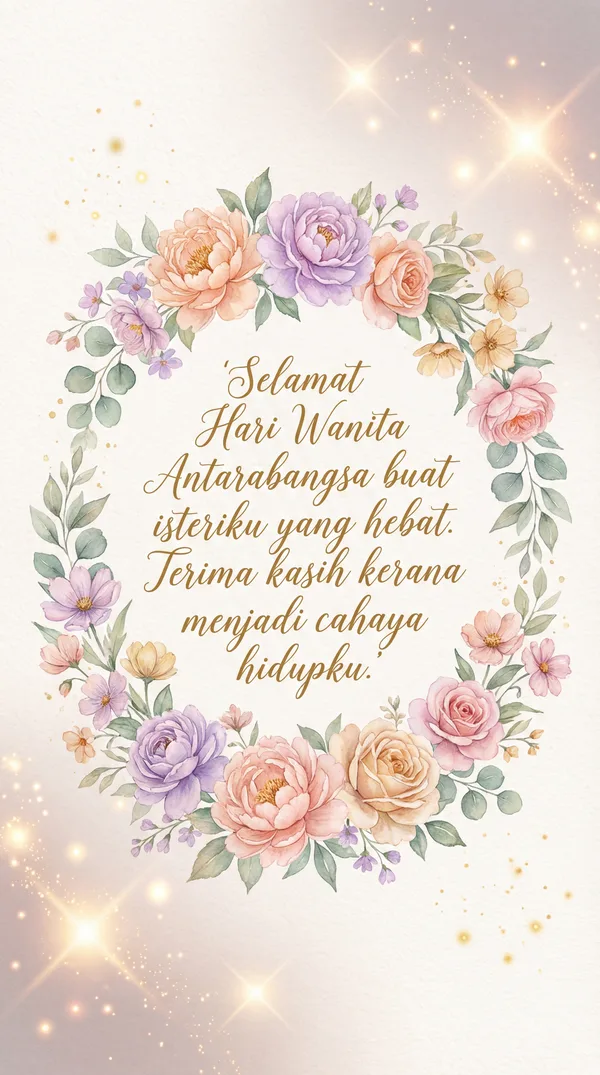 ‘Selamat
Hari Wanita
Antarabangsa buat
isteriku yang hebat.
Terima kasih kerana
menjadi cahaya
hidupku.’